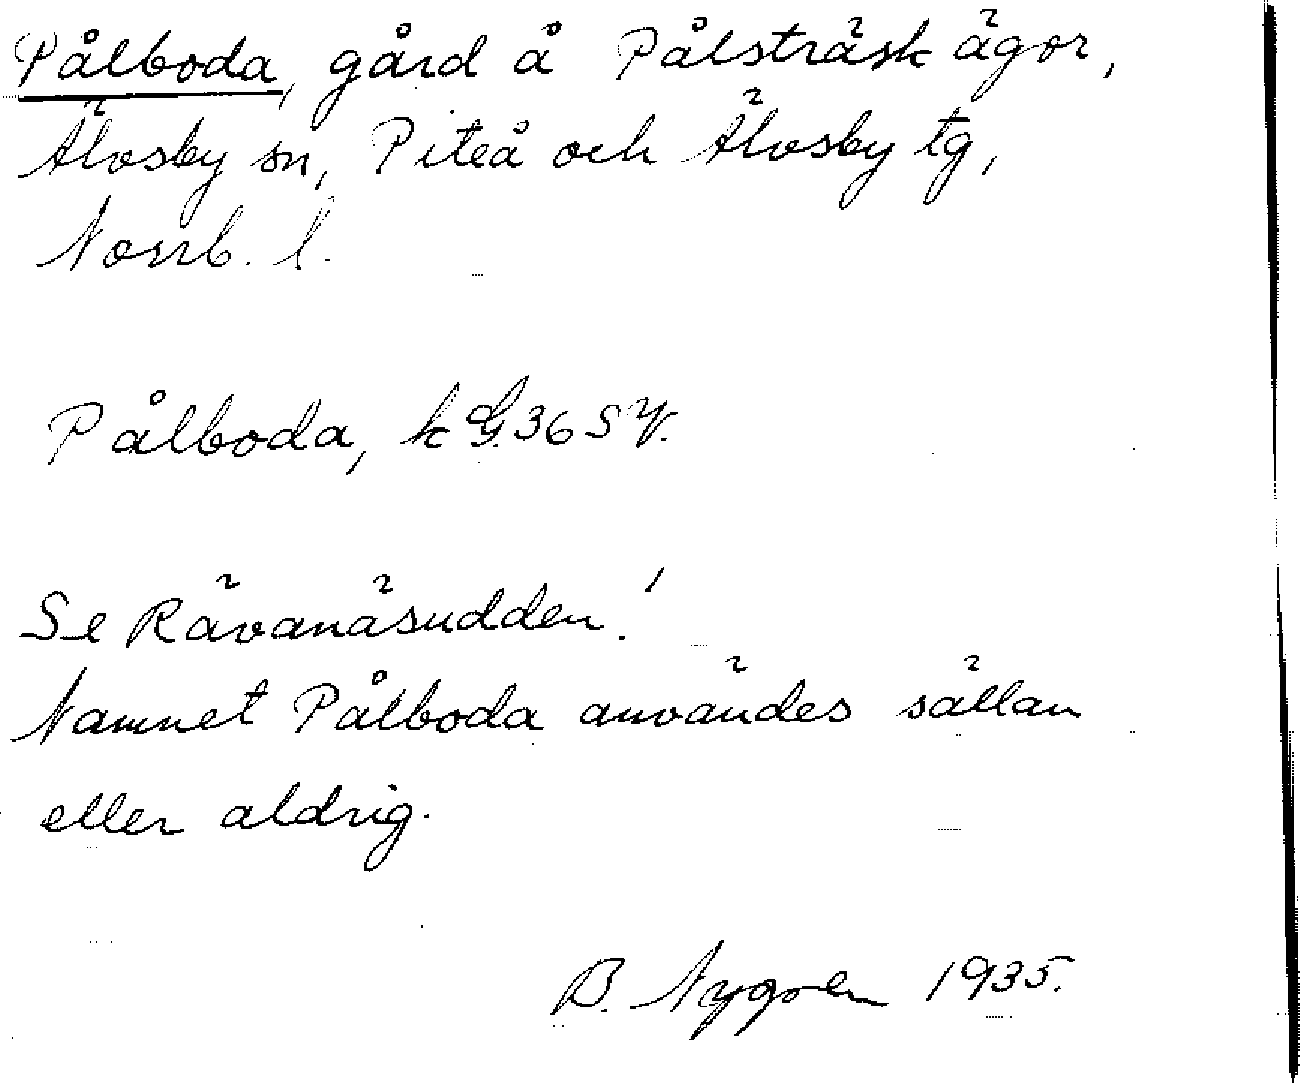 Pålboda, gård å Pålsträsk ägor,
Älvsby sn, Piteå och Älvsby tg,
Norrb. l.
Pålboda, k G. 36 SV.
Se Rävanäsudden!
Namnet Pålboda användes sällan
eller aldrig.
B. Nygren 1935.